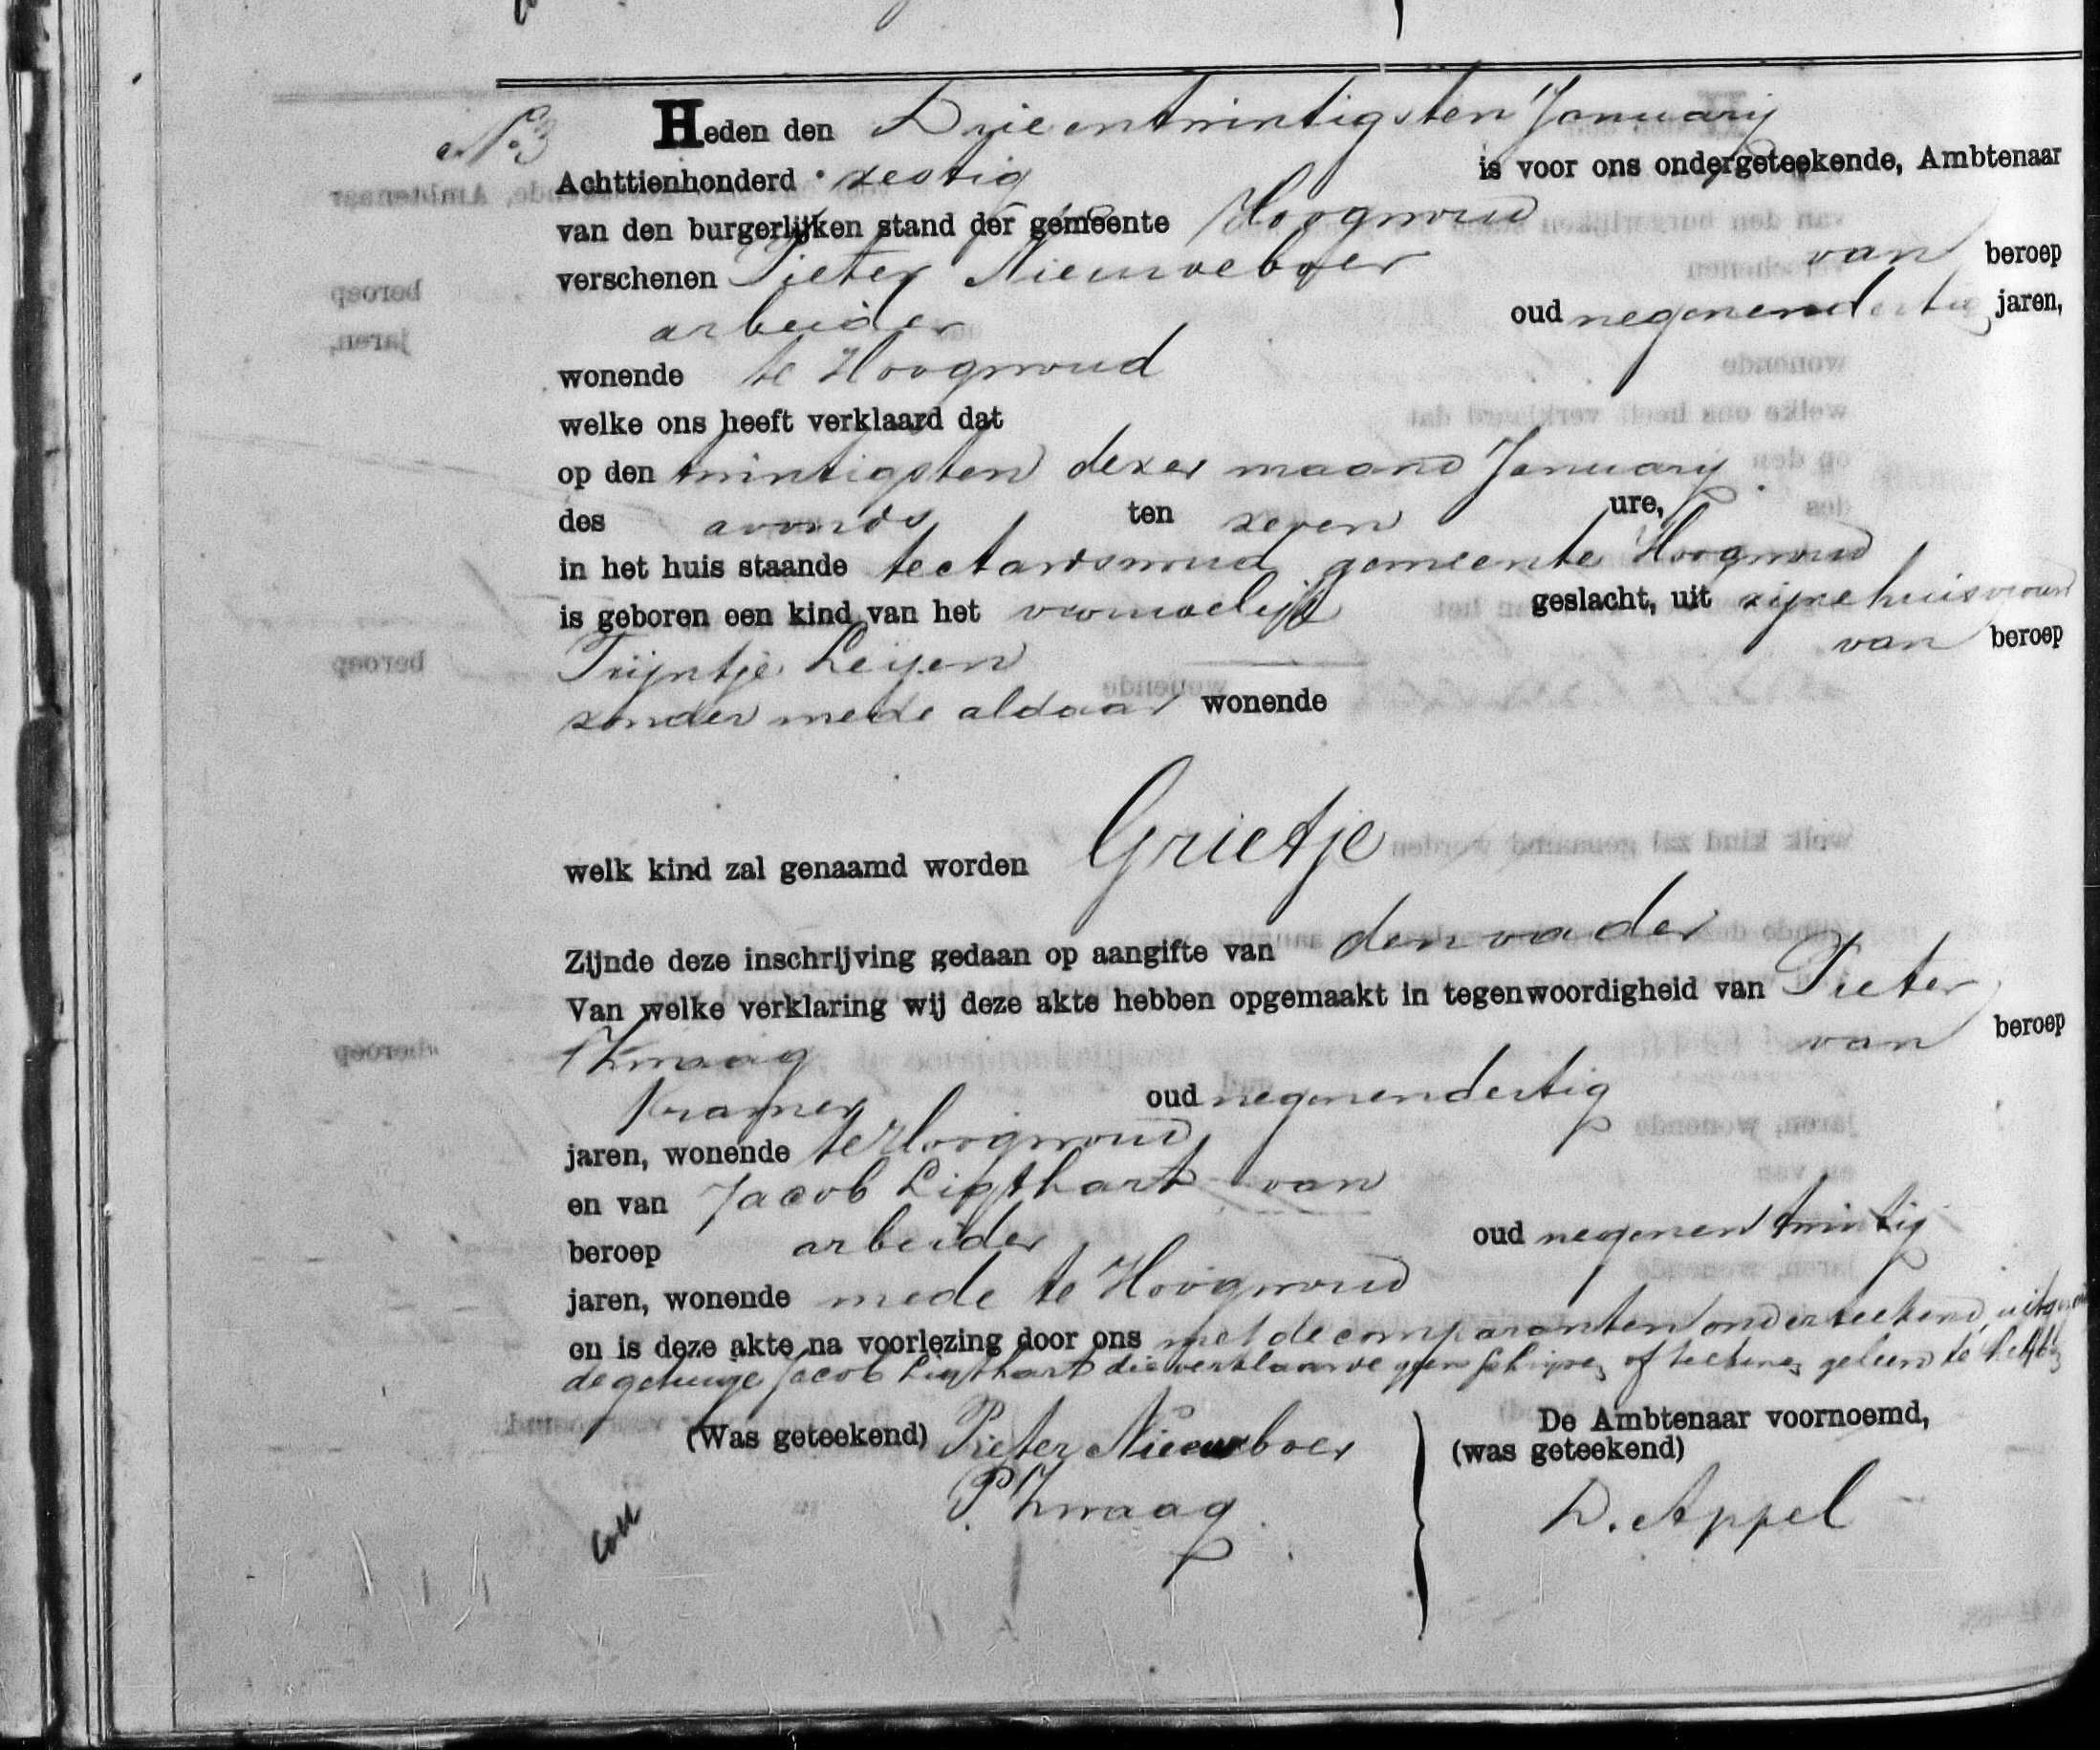 No 3
Heden den Drieentwintigsten January
Achttienhonderd zestig is voor ons ondergeteekende, Ambtenaar
van den burgerlijken stand der gemeente Hoogwoud
verschenen Pieter Nieuweboer van beroep
arbeider oud negenendertig jaren,
wonende te Hoogwoud
welke ons heeft verklaard dat
op den twintigsten dezer maand January
des avonds ten zeven ure,
in het huis staande te Aartswoud gemeente Hoogwoud
is geboren een kind van het vrouwelijk geslacht, uit zijne huisvrouw
Trijntje Leijen van beroep
zonder mede aldaar wonende
welk kind zal genaamd worden Grietje
Zijnde deze inschrijving gedaan op aangifte van den vader
Van welke verklaring wij deze akte hebben opgemaakt in tegenwoordigheid van Pieter
Zwaag van beroep
Kramer oud negenendertig
jaren, wonende te Hoogwoud
en van Jacob Ligthart van
beroep arbeider oud negenentwintig
jaren, wonende mede te Hoogwoud
en is deze akte na voorlezing door ons met de comparanten onderteekend,
de getuige Jacob Ligthart die verklaarde geen schrijven of teekenen geleerd te hebben
(Was geteekend) Pieter Nieuwboer
P Zwaag
De Ambtenaar voornoemd,
(was geteekend)
D. Appel
Coll